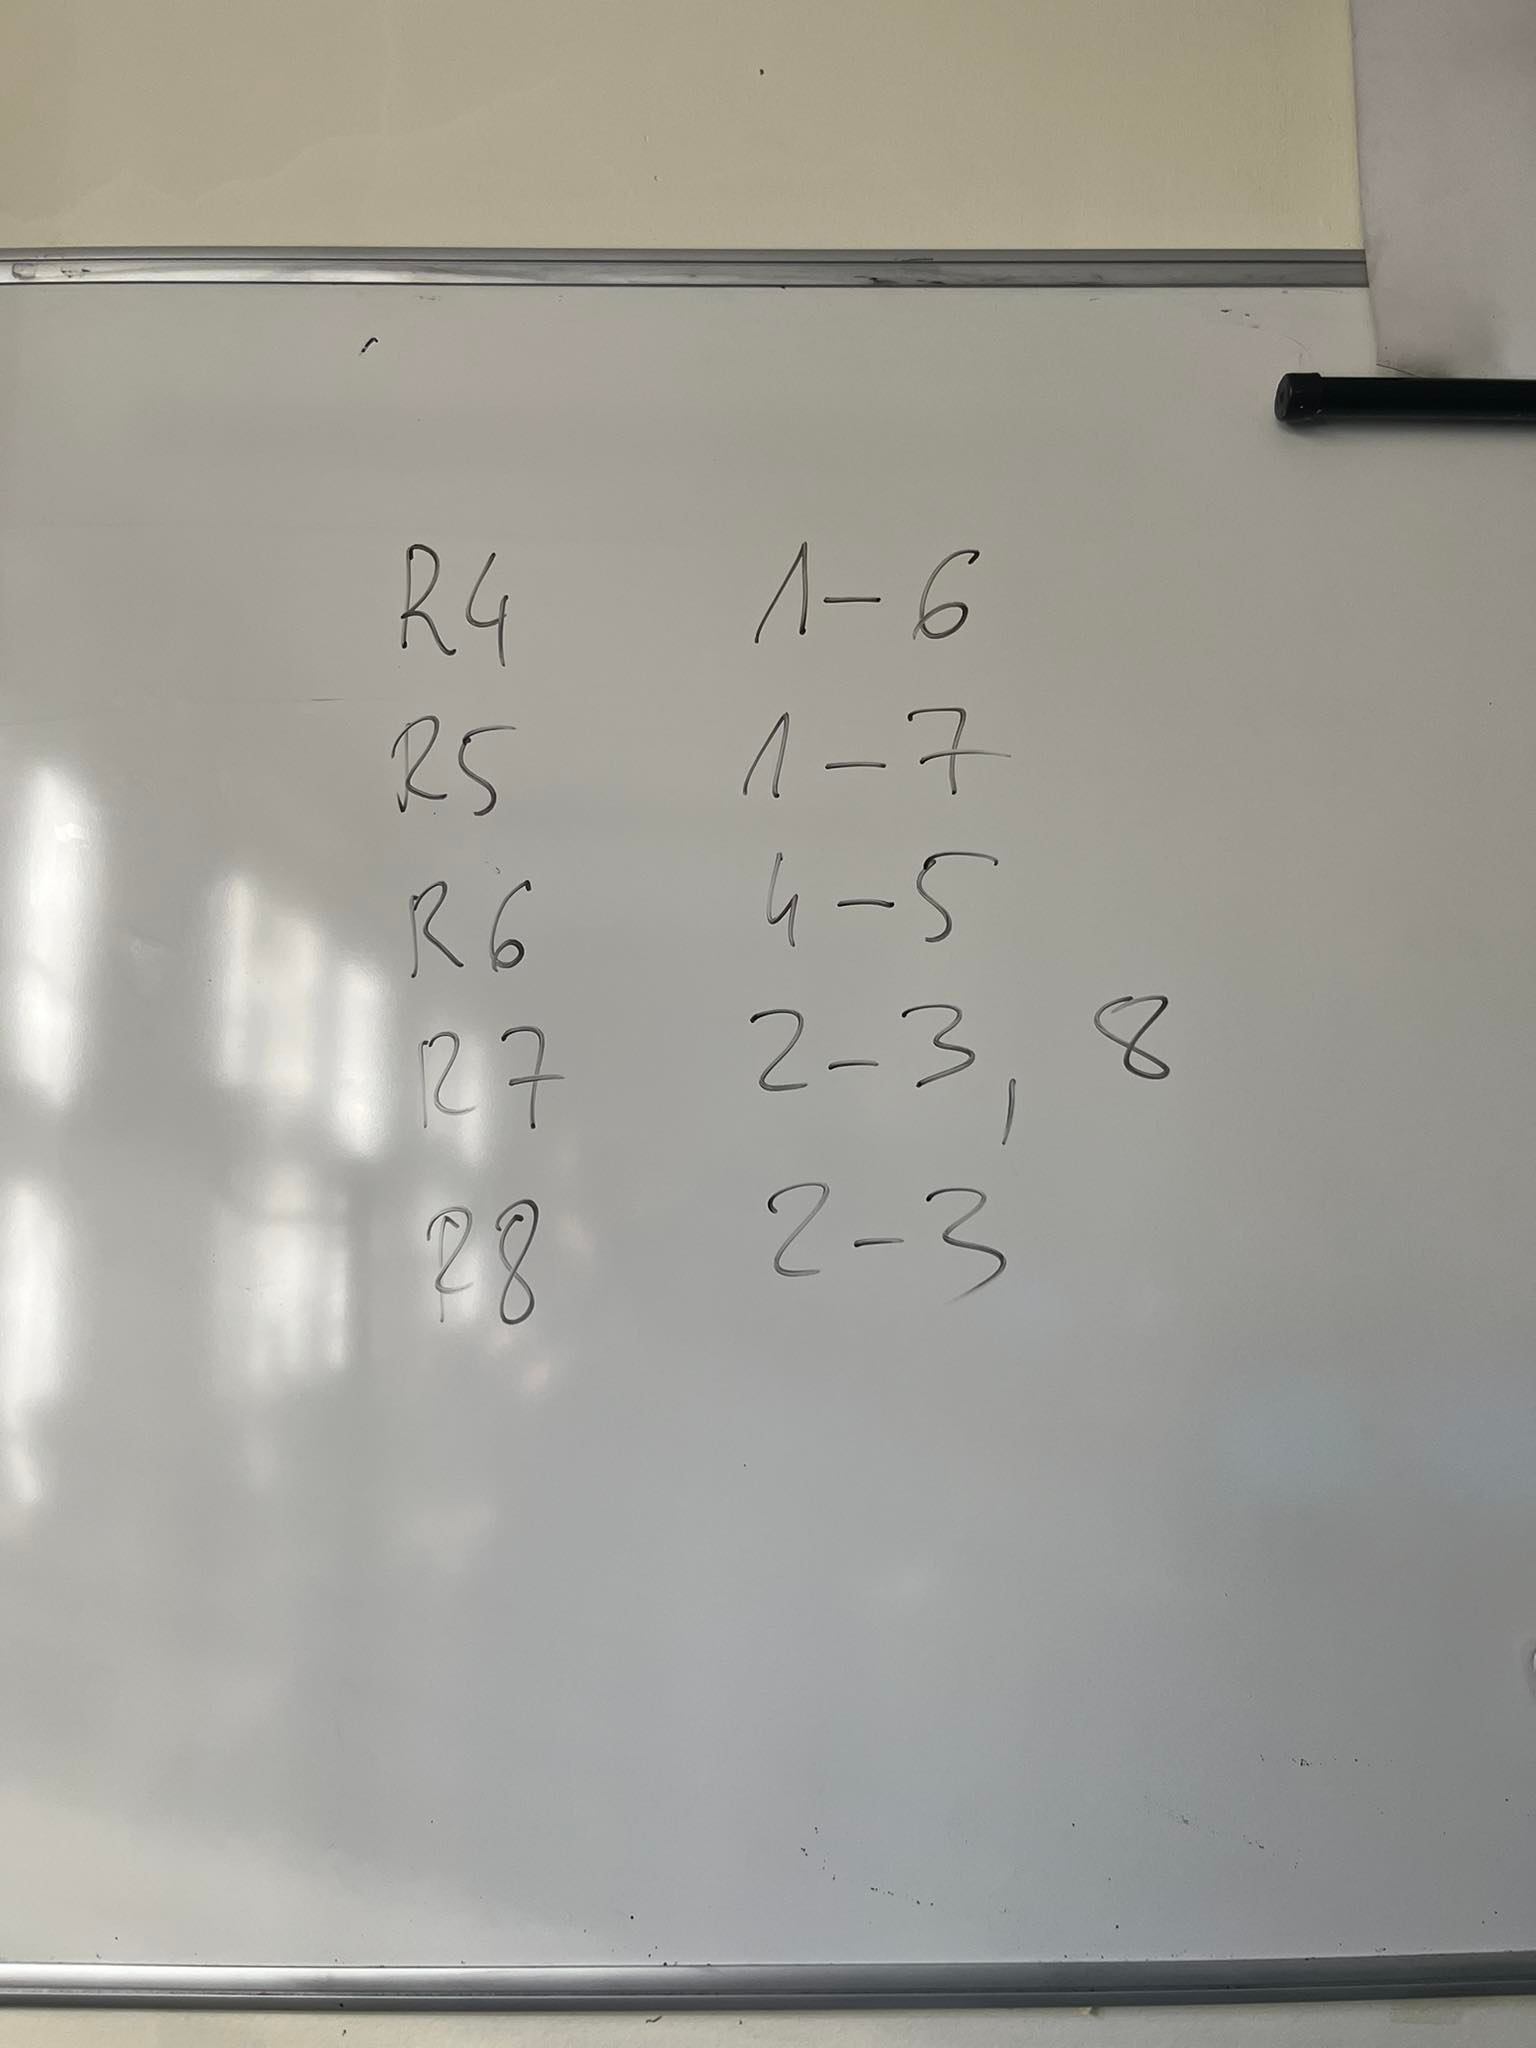 R4 1-6
R5 1-7
R6 4-5
R7 2-3, 8
R8 2-3